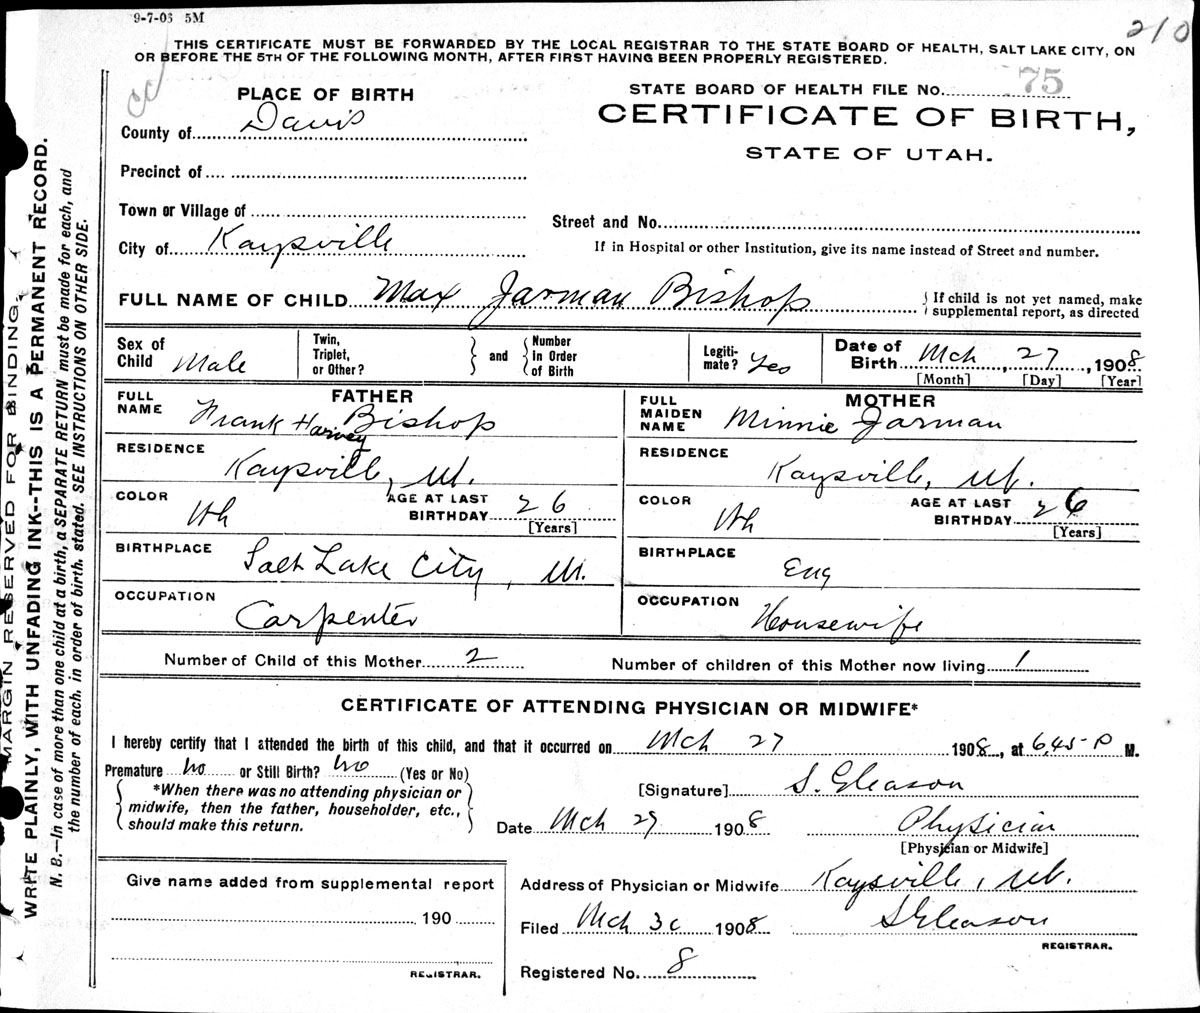 9-7-06 5M
210
THIS CERTIFICATE MUST BE FORWARDED BY THE LOCAL REGISTRAR TO THE STATE BOARD OF HEALTH, SALT LAKE CITY, ON
OR BEFORE THE 5TH OF THE FOLLOWING MONTH, AFTER FIRST HAVING BEEN PROPERLY REGISTERED.
STATE BOARD OF HEALTH FILE No. 75
CERTIFICATE OF BIRTH,
STATE OF UTAH.
PLACE OF BIRTH
County of Davis
Precinct of
Town or Village of
City of Kaysville
Street and No.
If in Hospital or other Institution, give its name instead of Street and number.
FULL NAME OF CHILD Max Jarman Bishop
If child is not yet named, make
supplemental report, as directed
Sex of
Child Male
Twin,
Triplet,
or Other?
and
Number
in Order
of Birth
Legiti-
mate? Yes
Date of
Birth Mch 27, 1908
[Month] [Day] [Year]
FATHER
FULL
NAME Frank Harvey Bishop
RESIDENCE
Kaysville, Ut.
COLOR Wh
AGE AT LAST
BIRTHDAY 26
[Years]
BIRTHPLACE Salt Lake City, Ut.
OCCUPATION
Carpenter
MOTHER
FULL
MAIDEN
NAME Minnie Jarman
RESIDENCE
Kaysville, Ut.
COLOR Wh
AGE AT LAST
BIRTHDAY 26
[Years]
BIRTHPLACE
Eng
OCCUPATION
Housewife
Number of Child of this Mother 2
Number of children of this Mother now living 1
CERTIFICATE OF ATTENDING PHYSICIAN OR MIDWIFE*
I hereby certify that I attended the birth of this child, and that it occurred on Mch 27 1908, at 6.45 P M.
Premature No or Still Birth? No (Yes or No)
*When there was no attending physician or
midwife, then the father, householder, etc.,
should make this return.
[Signature] S. Gleason
Date Mch 29 1908
Physician
[Physician or Midwife]
Give name added from supplemental report
190
REGISTRAR.
Address of Physician or Midwife Kaysville, Ut.
Filed Mch 30 1908
S Gleason
REGISTRAR.
Registered No. 8
MARGIN RESERVED FOR BINDING.
WRITE PLAINLY, WITH UNFADING INK--THIS IS A PERMANENT RECORD.
N. B.—In case of more than one child at a birth, a SEPARATE RETURN must be made for each, and
the number of each, in order of birth, stated. SEE INSTRUCTIONS ON OTHER SIDE.